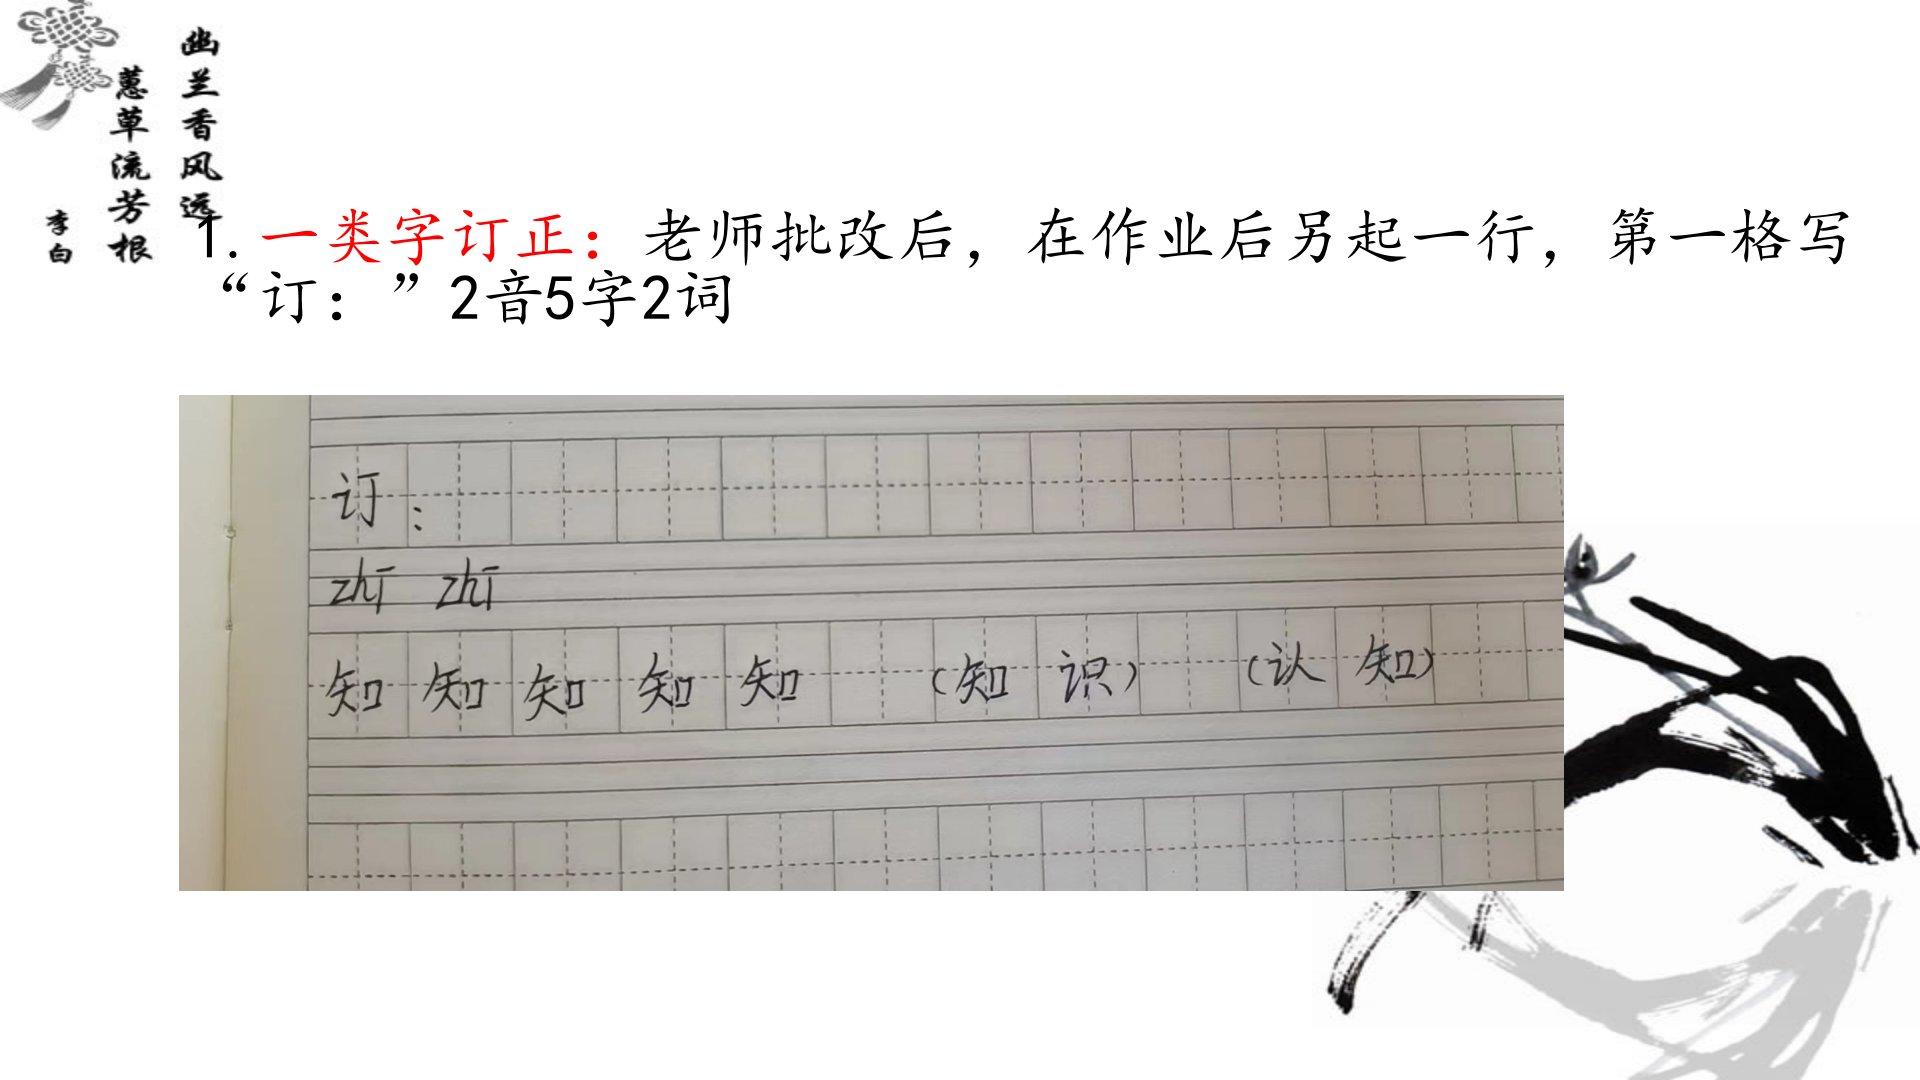 幽兰香风远
蕙草流芳根
李白
1. 一类字订正：老师批改后，在作业后另起一行，第一格写
“订：”2音5字2词
订：
zhī zhī
知 知 知 知 知 （知 识） （认 知）